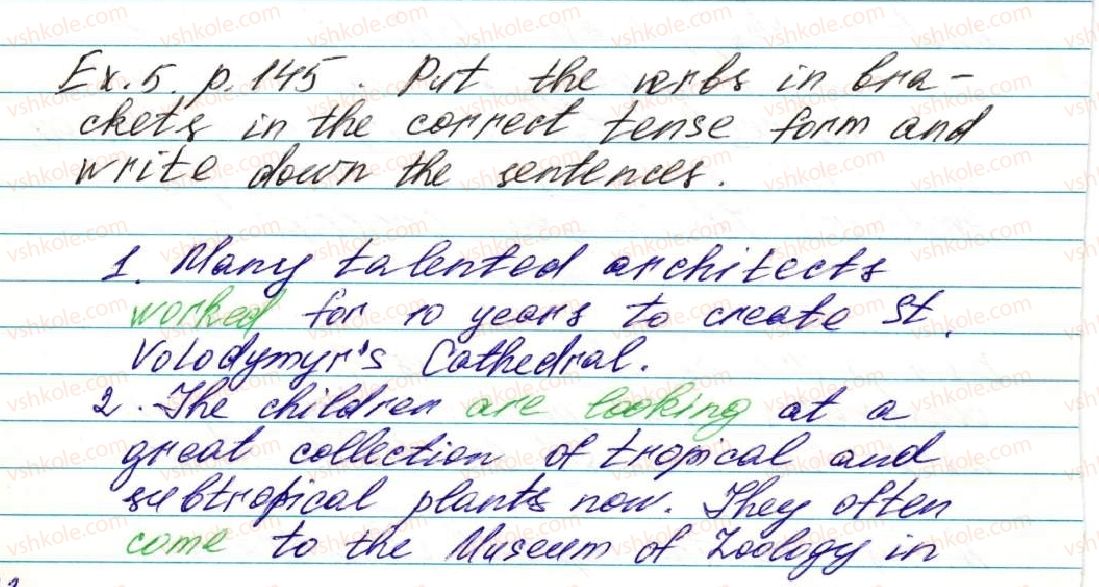 Ex. 5. p. 145. Put the verbs in bra-
ckets in the correct tense form and
write down the sentences.
1. Many talented architects
worked for 10 years to create St.
Volodymyr's Cathedral.
2. The children are looking at a
great collection of tropical and
subtropical plants now. They often
come to the Museum of Zoology in